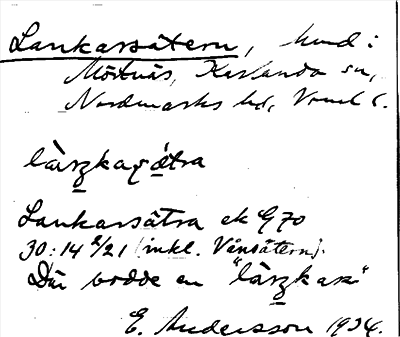 Lankarsätern, hmd i
Mörtnäs, Karlanda sn,
Nordmarks hd, Vrml l.
làrzkarsætra
Lankarsätra ek G70
30:14 2/21 (inkl. Vånsätern).
Där bodde en "làrzkar"
E. Andersson 1934.